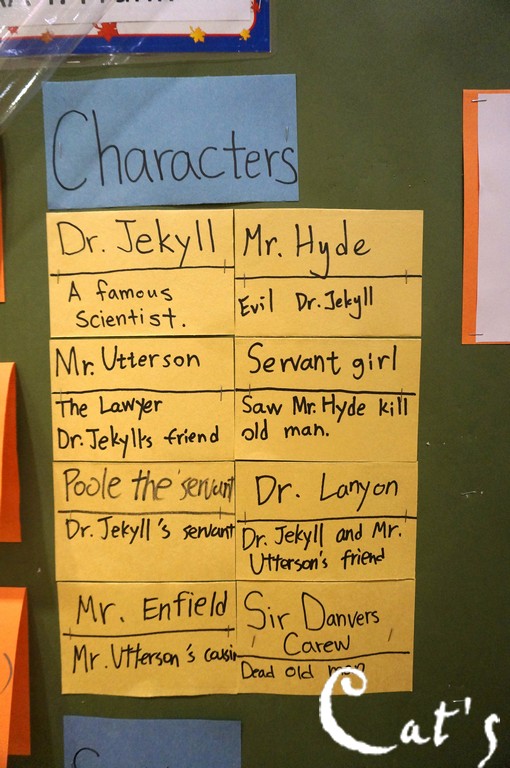 Characters
Dr. Jekyll
A famous
Scientist.
Mr. Hyde
Evil Dr. Jekyll
Mr. Utterson
The Lawyer
Dr. Jekyll's friend
Servant girl
Saw Mr. Hyde kill
old man.
Poole the servant
Dr. Jekyll's servant
Dr. Lanyon
Dr. Jekyll and Mr.
Utterson's friend
Mr. Enfield
Mr. Utterson's cousin
Sir Danvers
Carew
Dead old man
Cat's